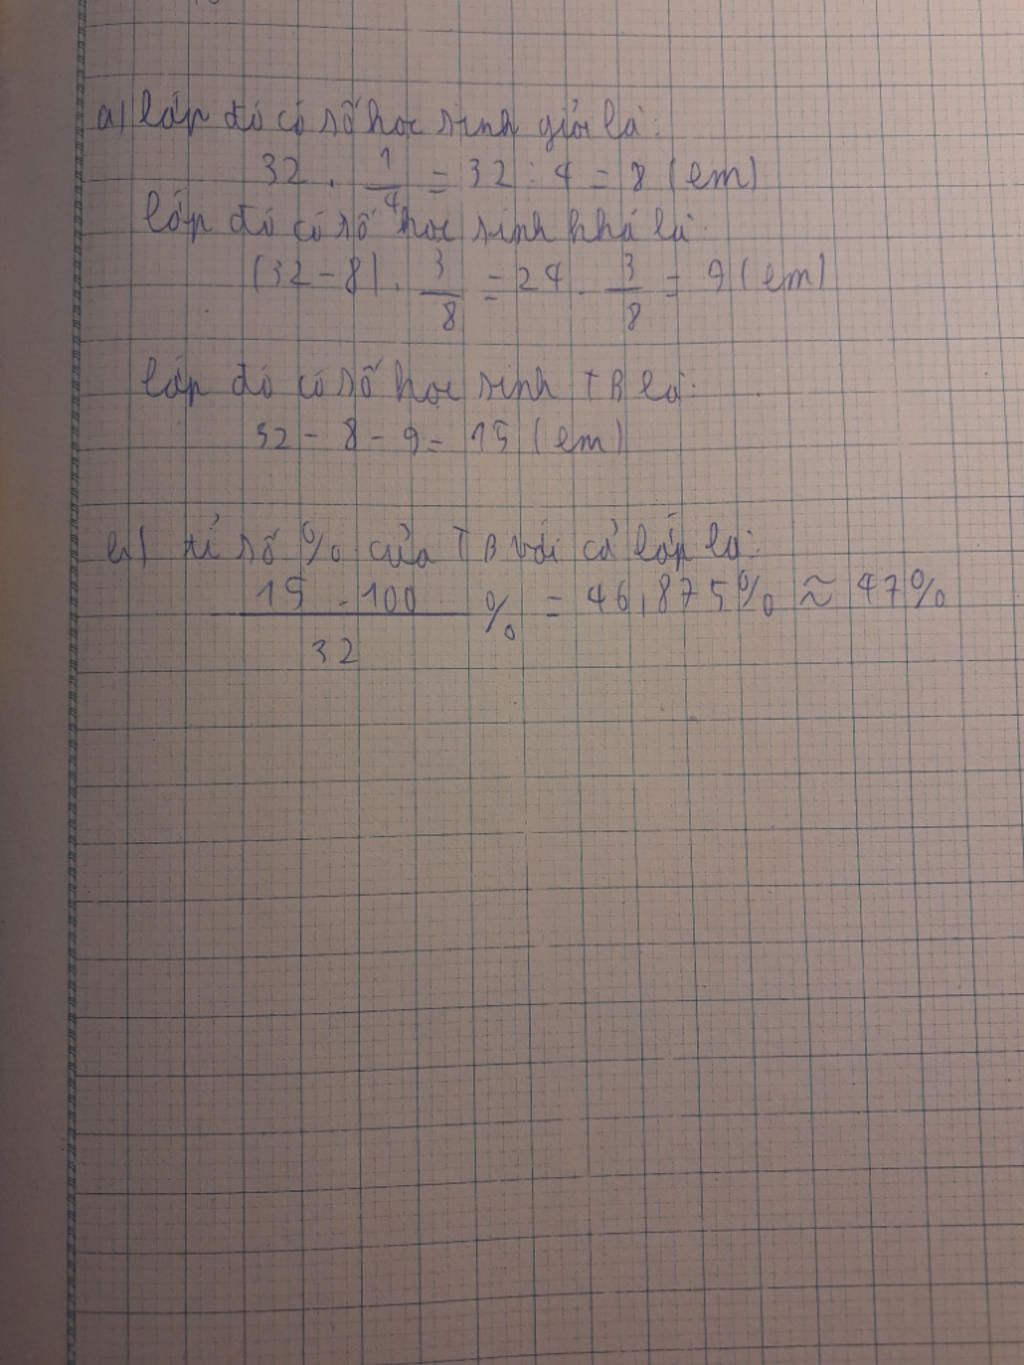 a) lớp đó có số học sinh giỏi là:
32 . 1/4 = 32 : 4 = 8 (em)
lớp đó có số học sinh khá là:
(32 - 8) . 3/8 = 24 . 3/8 = 9 (em)
lớp đó có số học sinh TB là:
32 - 8 - 9 = 15 (em)
b) tỉ số % của TB với cả lớp là:
15 . 100 / 32 % = 46,875% ≈ 47%